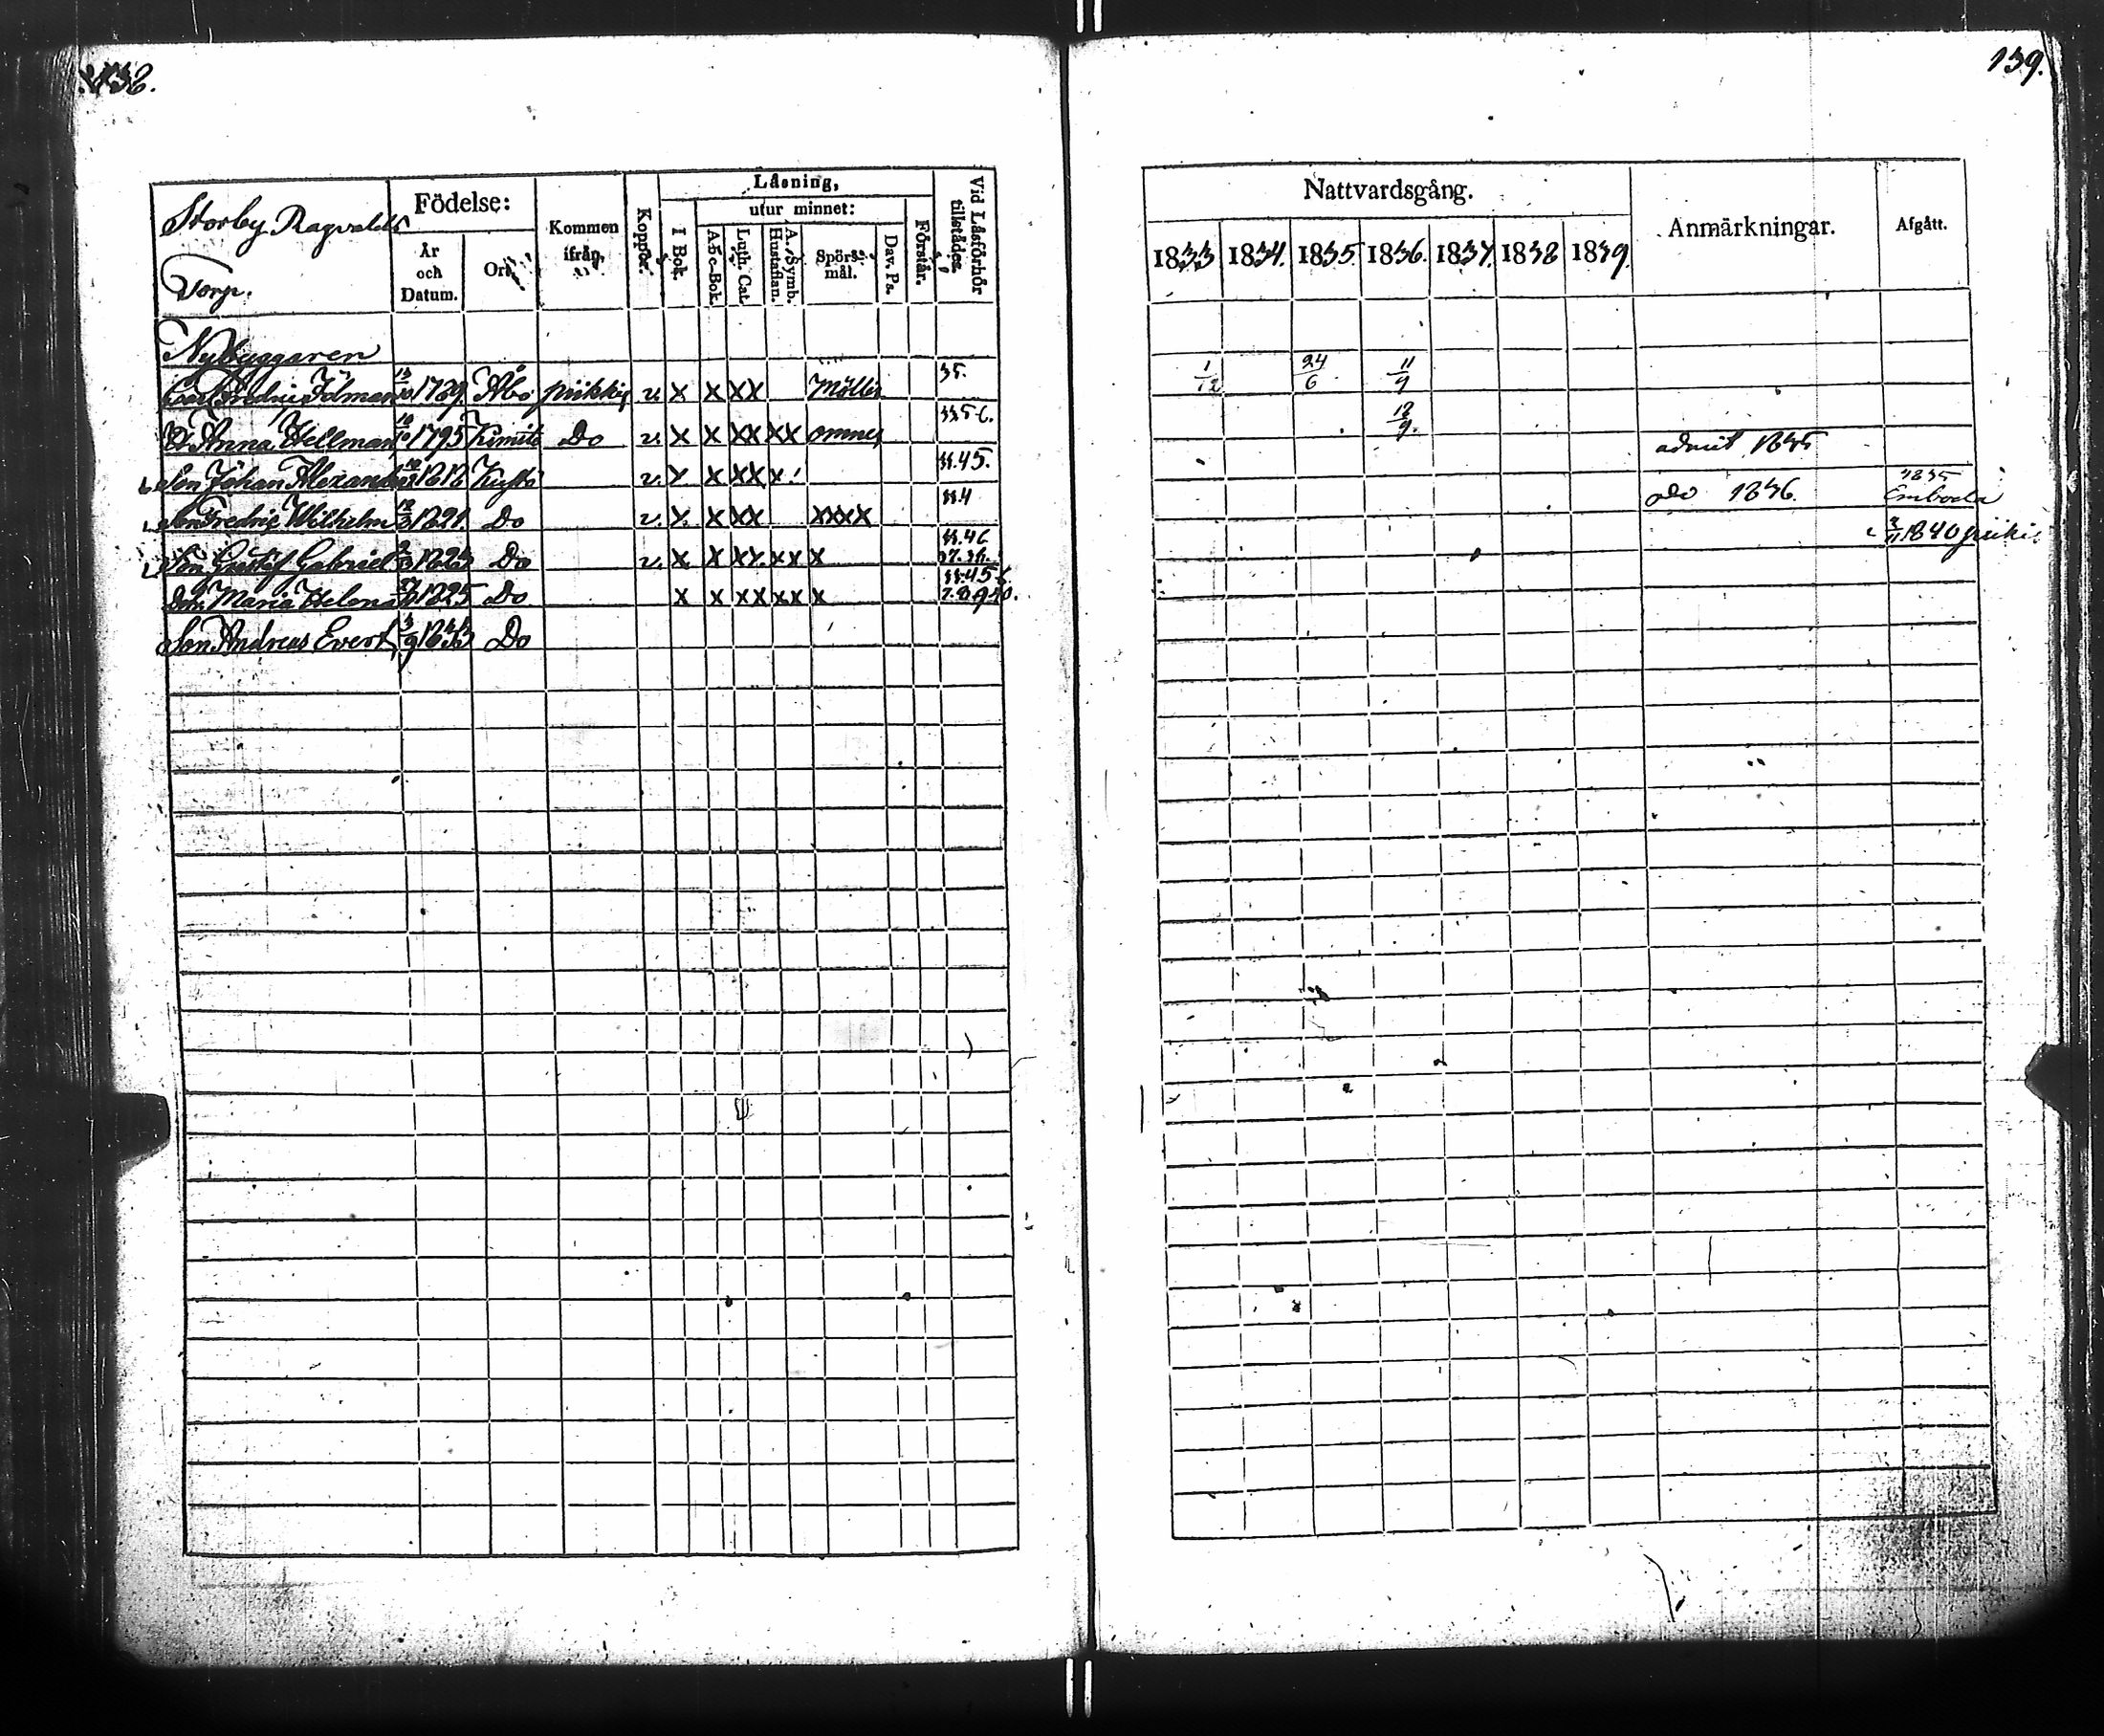 138.
Storby Ragvalds
Torp.
Födelse:
År och Datum.
Ort.
Kommen ifrån.
Koppor.
Läsning,
I Bok.
utur minnet:
A-b-c-Bok.
Luth. Cat.
A. Symb. Hustaflan.
Spörsmål.
Dav. Ps.
Förstår.
Vid Läsförhör tillstådes.
Nybyggaren
Carl Fredric Idman 13/10 1789 Åbo piikkis v. x x xx Möller 35.
H. Anna Hellman 10/10 1795 Kimito Do v. x x xx xx omnes 3356.
Son Johan Alexand 1818 Kusto v. x x xx x! 33.45.
Son Fredric Wilhelm 12/3 1821. Do v. x. x xx xxxx 33.4
Son Gustaf Gabriel 1823 Do v. x x xx. xx x 33.46
Dotr. Maria Helena 1825 Do x x xx xx x 33.456. 7.8.9.40.
Son Andreas Evert 3/9 1833 Do
139.
Nattvardsgång.
Anmärkningar.
Afgått.
1833 1834. 1835. 1836. 1837. 1838 1839.
1/12 24/6 11/9
18/9.
admit 1835
do 1836. 1835 Emboda
3/11 1840 piikis